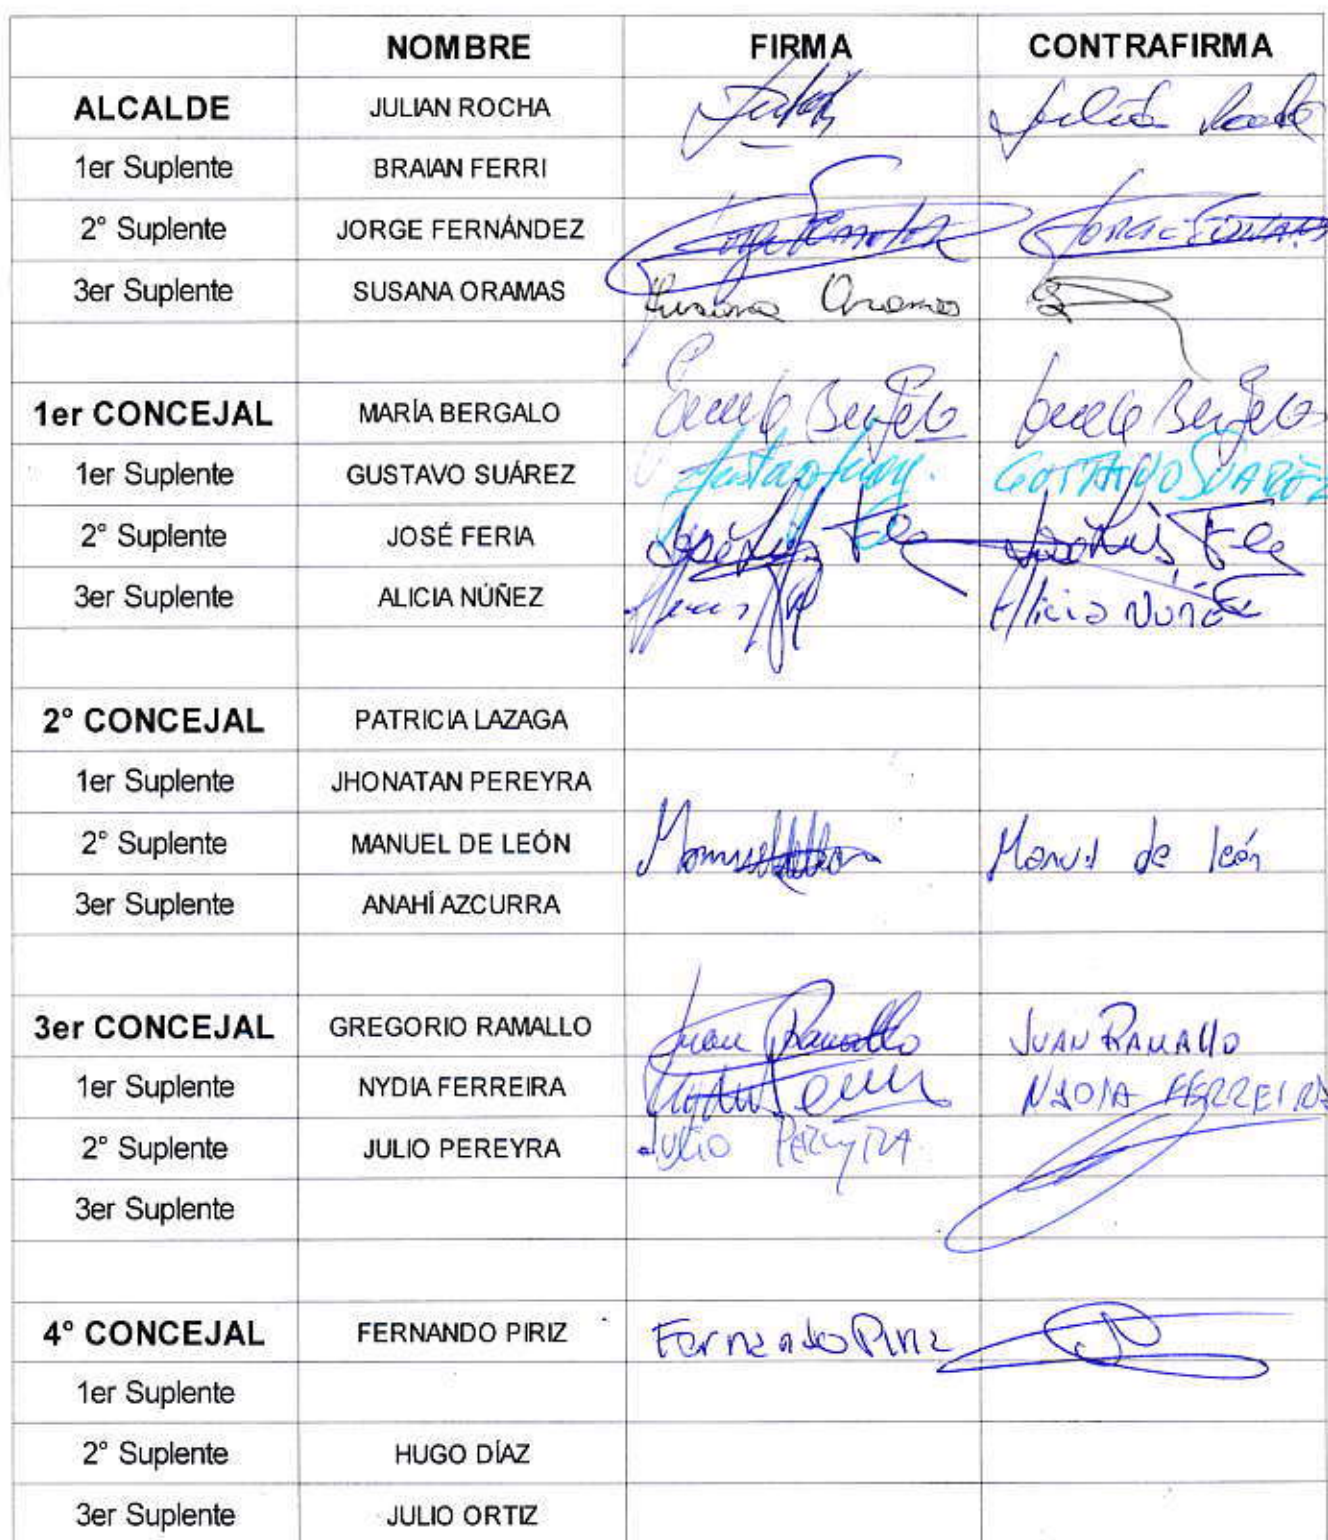 NOMBRE FIRMA CONTRAFIRMA
ALCALDE JULIAN ROCHA Julián
1er Suplente BRAIAN FERRI
2° Suplente JORGE FERNÁNDEZ Jorge
3er Suplente SUSANA ORAMAS Susana Oramas
1er CONCEJAL MARÍA BERGALO
1er Suplente GUSTAVO SUÁREZ GUSTAVO SUAREZ
2° Suplente JOSÉ FERIA
3er Suplente ALICIA NÚÑEZ Alicia Nuñez
2° CONCEJAL PATRICIA LAZAGA
1er Suplente JHONATAN PEREYRA
2° Suplente MANUEL DE LEÓN Manuel de león
3er Suplente ANAHÍ AZCURRA
3er CONCEJAL GREGORIO RAMALLO Juan Ramallo JUAN RAMALLO
1er Suplente NYDIA FERREIRA NYDIA FERREIRA
2° Suplente JULIO PEREYRA JULIO PEREYRA
3er Suplente
4° CONCEJAL FERNANDO PIRIZ Fernando Piriz
1er Suplente
2° Suplente HUGO DÍAZ
3er Suplente JULIO ORTIZ